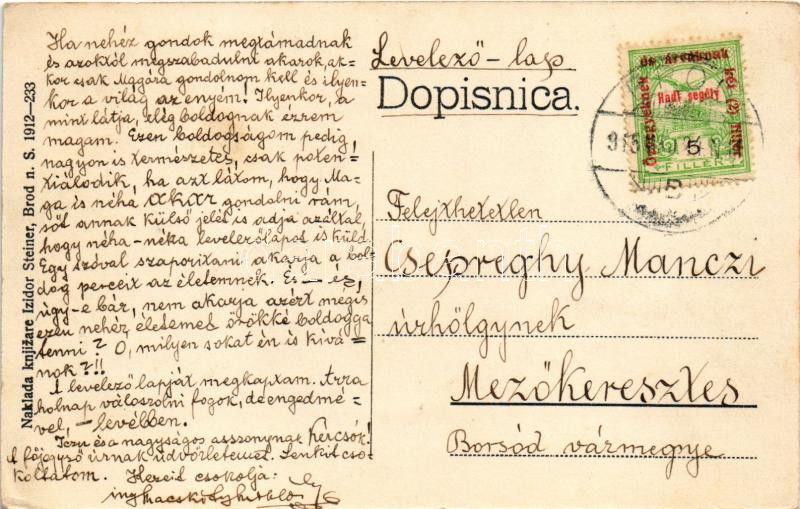 Ha nehéz gondok megtámadnak
és azoktól megszabadulni akarok, ak-
kor csak Magára gondolnom kell és ilyen-
kor a világ az enyém! Ilyenkor, a
mint látja, elég boldognak érzem
magam. Ezen boldogságom pedig,
nagyon is természetes, csak poten-
ziálódik, ha azt látom, hogy Ma-
ga és néha akar gondolni rám,
sőt annak külső jelét is adja azáltal,
hogy néha-néka levelezőlapot is küld
Egy szóval szaporitani akarja a bol-
dog perceit az életemnek. És — és,
úgy-e bár, nem akarja azért mégis
ezen nehéz életemet örökké boldoggá
tenni? O, milyen sokat én is kívá-
nok?!!
A levelező lapját megkaptam. Arra
holnap válaszolni fogok, de engedmé-
vel, — levélben.
és a nagyságos asszonynak kézcsók!
A főjegyző úrnak üdvözletemet. Senkit cso-
koltatom. Kezeit csokolja:
Naklada knjižare Izidor Steiner, Brod n. S. 1912—233
Levelező-lap
Dopisnica.
Özvegyeknek és árváknak két (2) fillér
Hadi segély
5
FILLÉR
Felejthetetlen
Csepreghy Manczi
úrhölgynek
Mezőkeresztes
Borsód vármegye